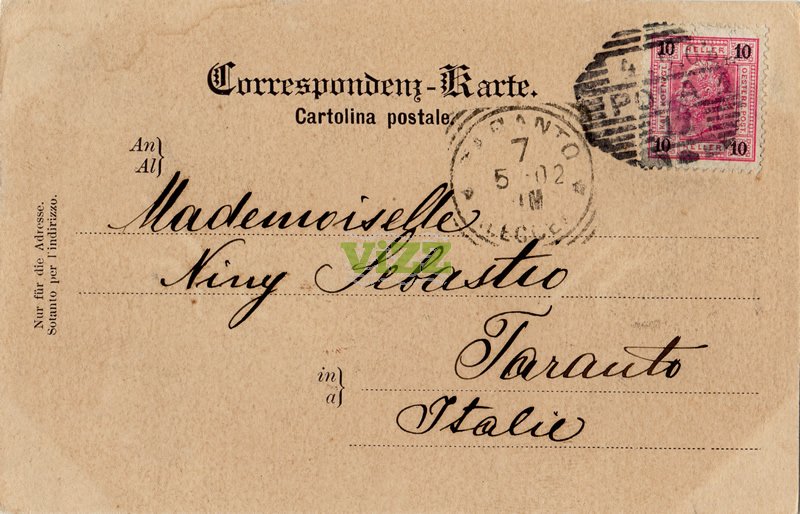 Correspondenz-Karte.
Cartolina postale.
10 HELLER 10
OESTERR. POST
10 HELLER 10
4
POLA
TARANTO
7
5 02
An
Al
Mademoiselle
vizz
Niny Sebastio
Taranto
in
a
Italie
Nur für die Adresse.
Sotanto per l'indirizzo.